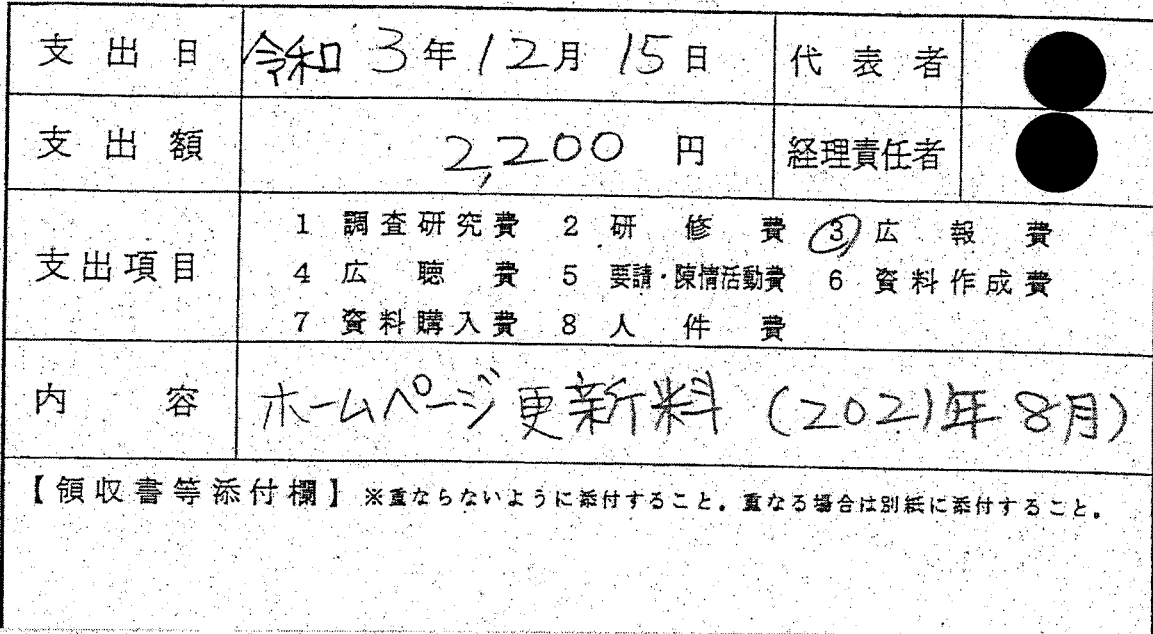 支出日 令和3年12月15日 代表者
支出額 2,200円 経理責任者
支出項目 1 調査研究費 2 研修費 3 広報費
4 広聴費 5 要請・陳情活動費 6 資料作成費
7 資料購入費 8 人件費
内容 ホームページ更新料 (2021年8月)
【領収書等添付欄】 ※重ならないように添付すること。重なる場合は別紙に添付すること。